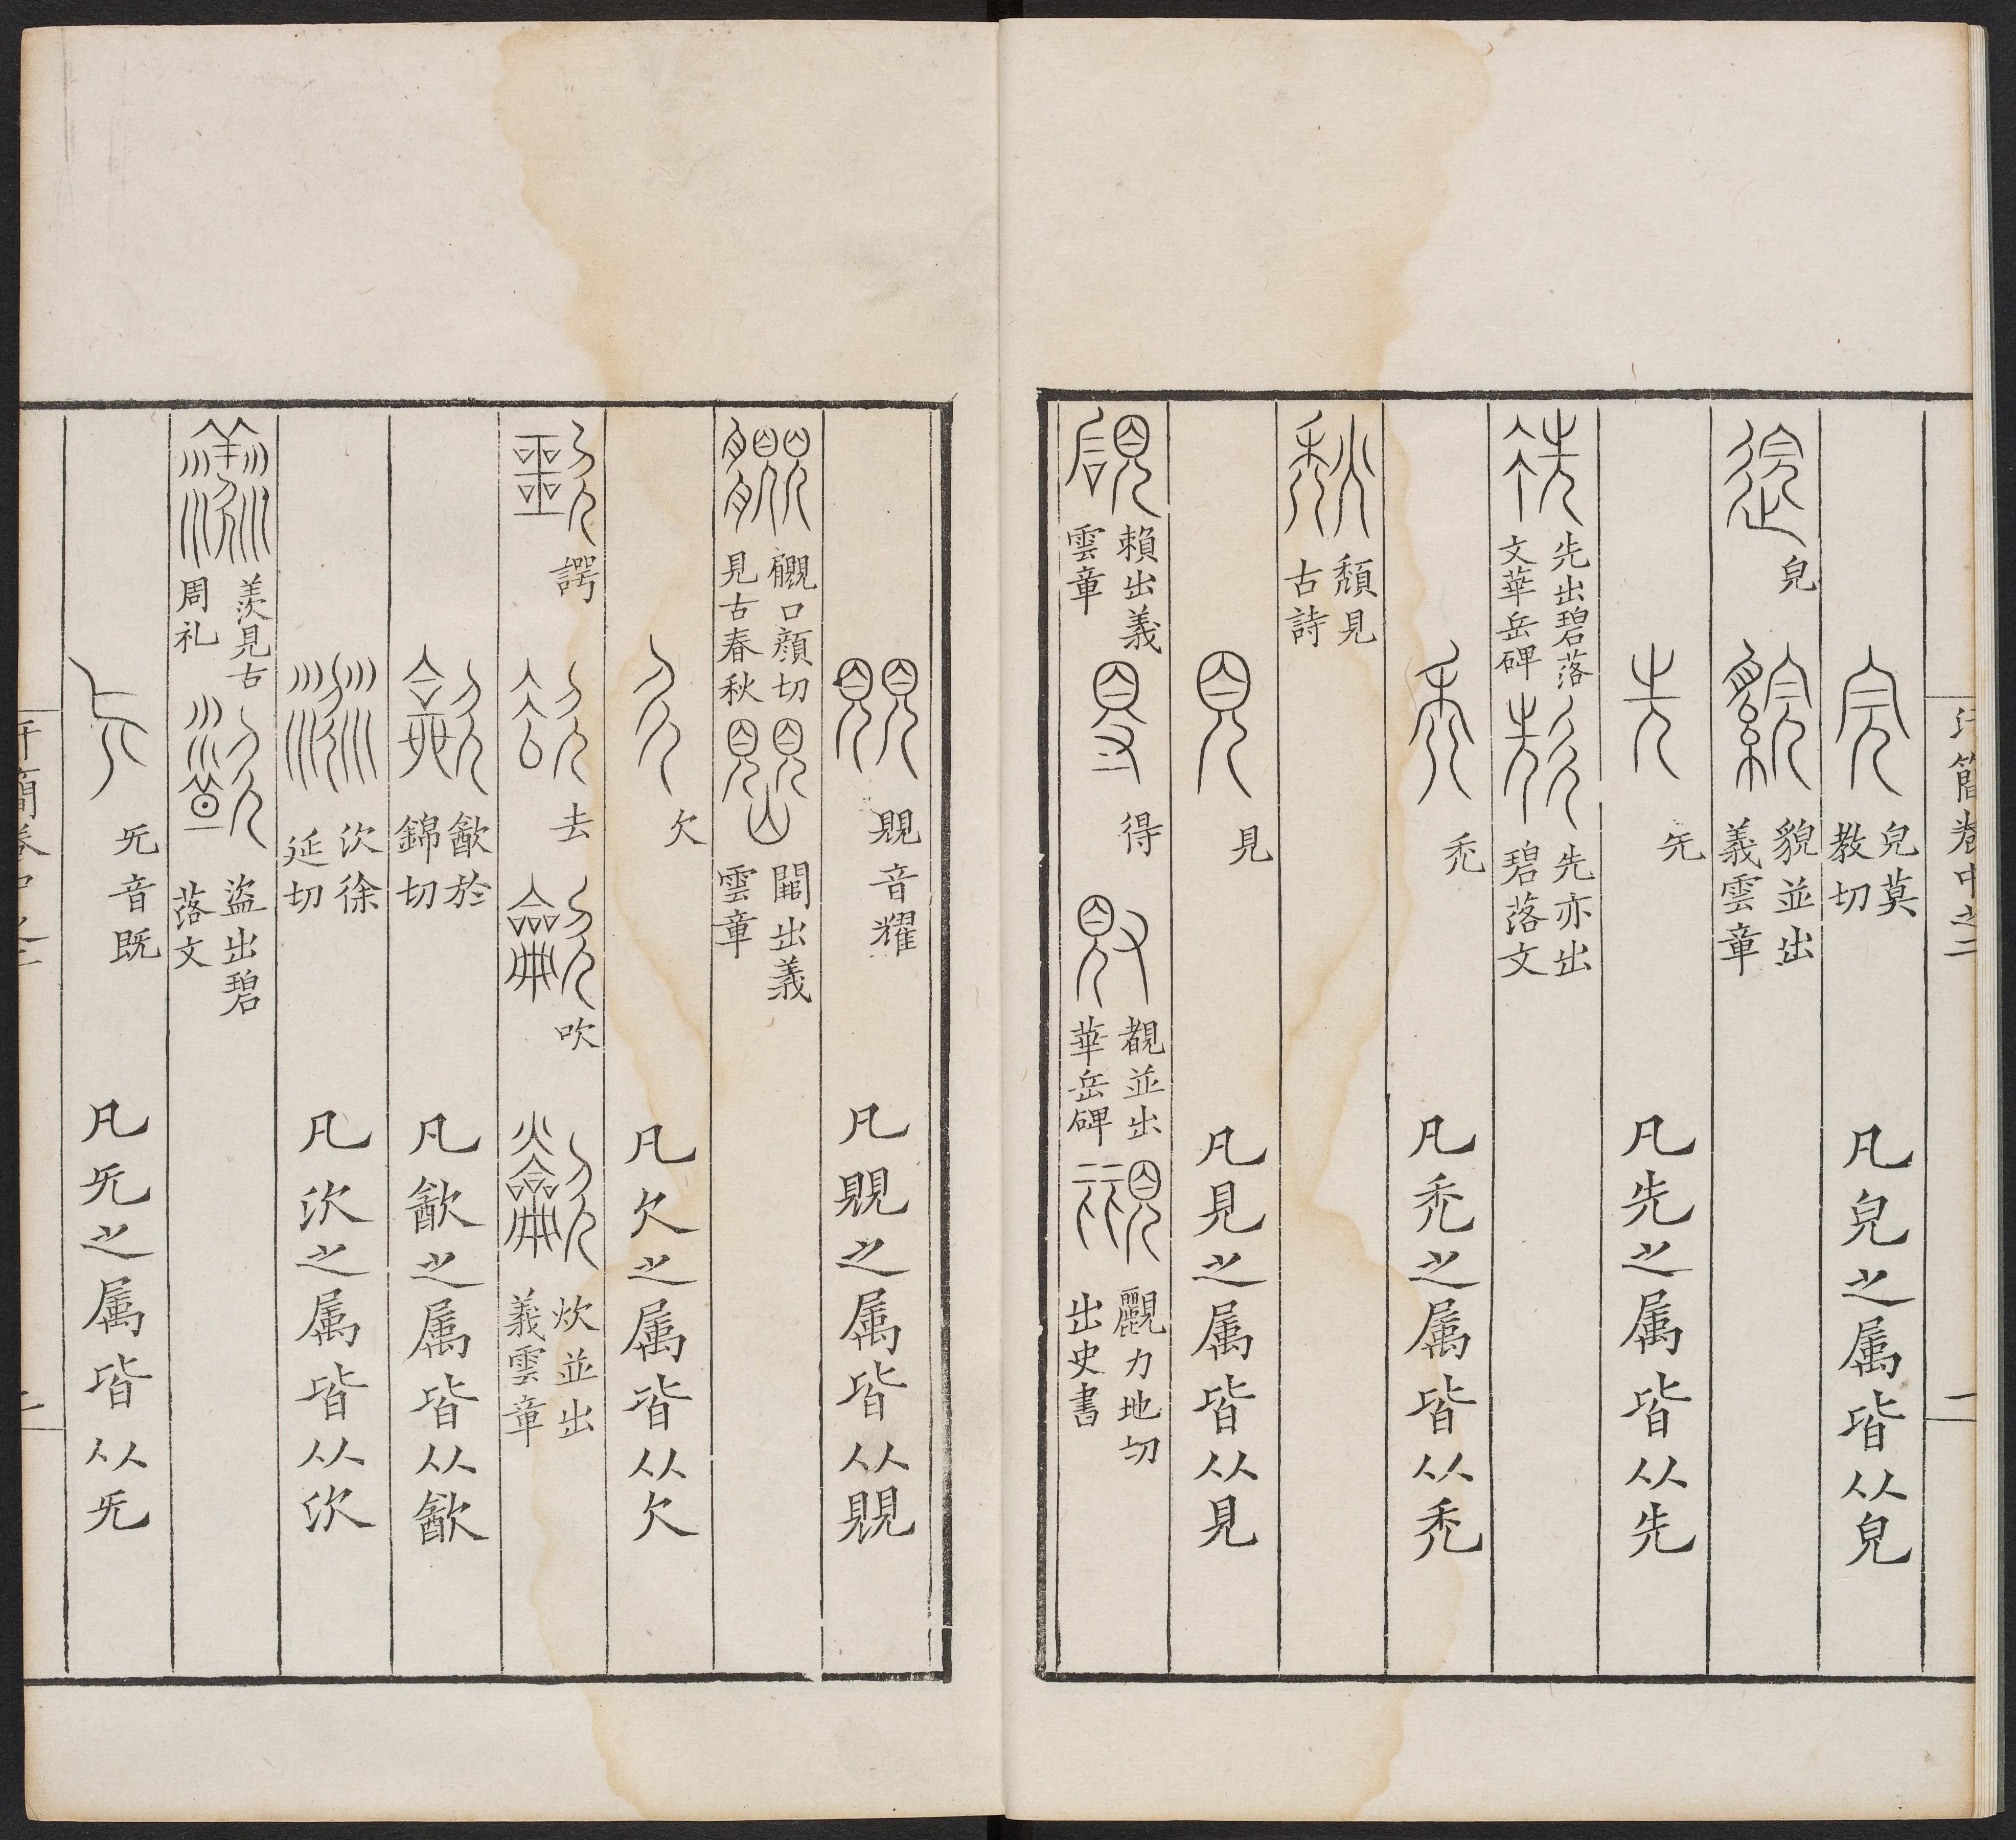 汗簡卷中之二
一
皃莫教切 凡皃之属皆从皃
皃 貌並出義雲章
兂 凡先之属皆从先
先出碧落文華岳碑 先亦出碧落文
禿 凡禿之属皆从禿
頽見古詩
見 凡見之属皆从見
頼出義雲章 得 覩並出華岳碑 觀力地切出史書
覞音耀 凡覞之属皆从覞
覵口顔切見古春秋 闞出義雲章
欠 凡欠之属皆从欠
諤 去 吹 炊並出義雲章
㱃於錦切 凡㱃之属皆从㱃
㳄徐延切 凡㳄之属皆从㳄
羨見古周礼 盜出碧落文
旡音既 凡旡之属皆从旡
汗簡卷中之二